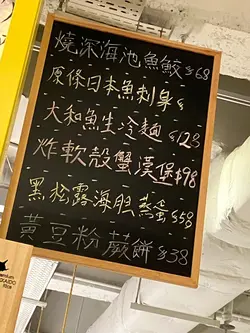 燒深海池魚鮫$68
原條日本魚刺身$
大和魚生冷麵$123
炸軟殼蟹漢堡$98
黑松露海胆蒸蛋$58
黃豆粉蕨餅$38